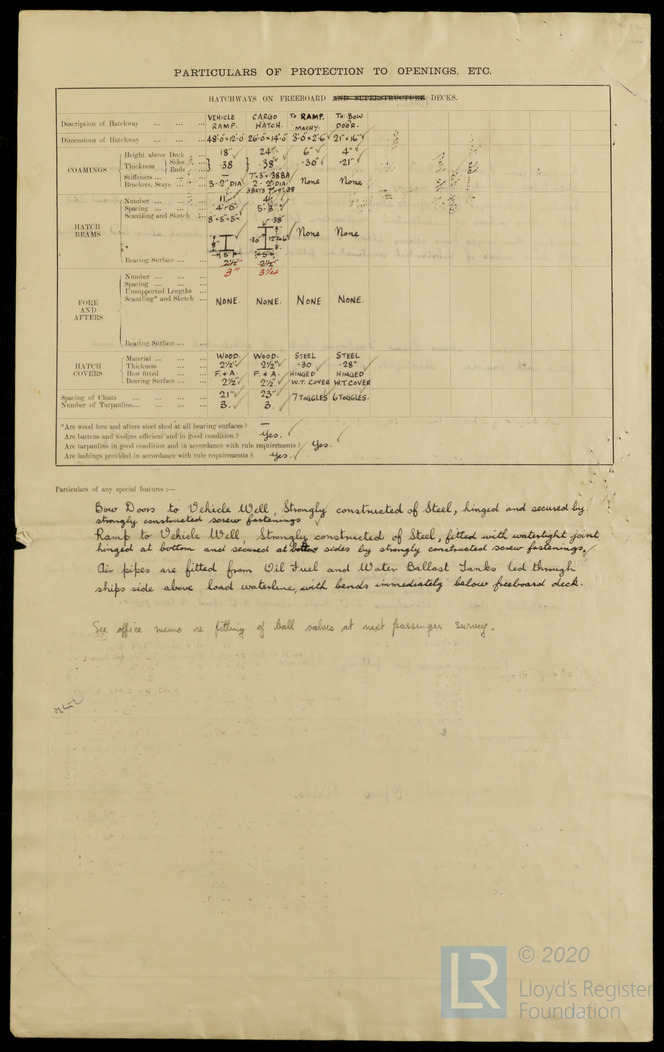 PARTICULARS OF PROTECTION TO OPENINGS, ETC.
HATCHWAYS ON FREEBOARD AND SUPERSTRUCTURE DECKS.
Description of Hatchway ... ... ... VEHICLE RAMP. CARGO HATCH. TO RAMP. MACHY. TO BOW DOOR.
Dimensions of Hatchway ... ... ... 48'0"×12'0 26'0"×14'0" 3'0"×2'6" 21"×16"
COAMINGS
Height above Deck 18" 24" 6" 4"
Thickness Sides Ends .38 .38" .30" .21"
Stiffeners — 7"×3"×.38 BA
Brackets, Stays 3-2" DIA 2-2" DIA. None None
HATCH BEAMS
Number 11
Spacing 4'-6"
Scantling and Sketch 8"×5"×5" .38" None None
Bearing Surface 2½" 2½"
3" 3¼
FORE AND AFTERS
Number
Spacing
Unsupported Lengths
Scantling* and Sketch NONE. NONE. NONE NONE.
Bearing Surface
HATCH COVERS
Material WOOD. WOOD. STEEL STEEL
Thickness 2½" 2½" .30 .28"
How fitted F. & A. F. & A. HINGED HINGED
Bearing Surface 2½" 2½" W.T. COVER W.T. COVER
Spacing of Cleats 21" 23" 7 TOGGLES 6 TOGGLES.
Number of Tarpaulins 3. 3.
*Are wood fore and afters steel shod at all bearing surfaces? —
Are battens and wedges efficient and in good condition? Yes.
Are tarpaulins in good condition and in accordance with rule requirements? Yes.
Are lashings provided in accordance with rule requirements? Yes.
Particulars of any special features :—
Bow Doors to Vehicle Well, Strongly constructed of Steel, hinged and secured by
strongly constructed screw fastenings
Ramp to Vehicle Well, Strongly constructed of Steel, fitted with watertight joint
hinged at bottom and secured at sides by strongly constructed screw fastenings,
Air pipes are fitted from Oil Fuel and Water Ballast Tanks led through
ships side above load waterline, with bends immediately below freeboard deck.
See office memo re fitting of ball valves at next passenger survey.
LR
© 2020
Lloyd's Register
Foundation